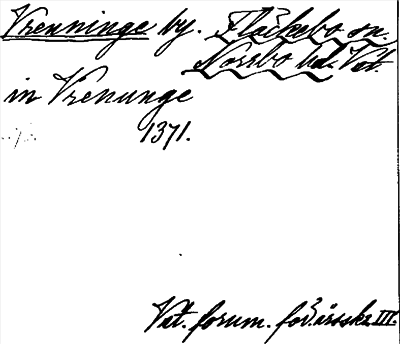 Vrenninge by. Fläckebo sn.
Norrbo hd. Vst.
in Vrenunge
1371.
Vst. forum. för. årsskr. III.